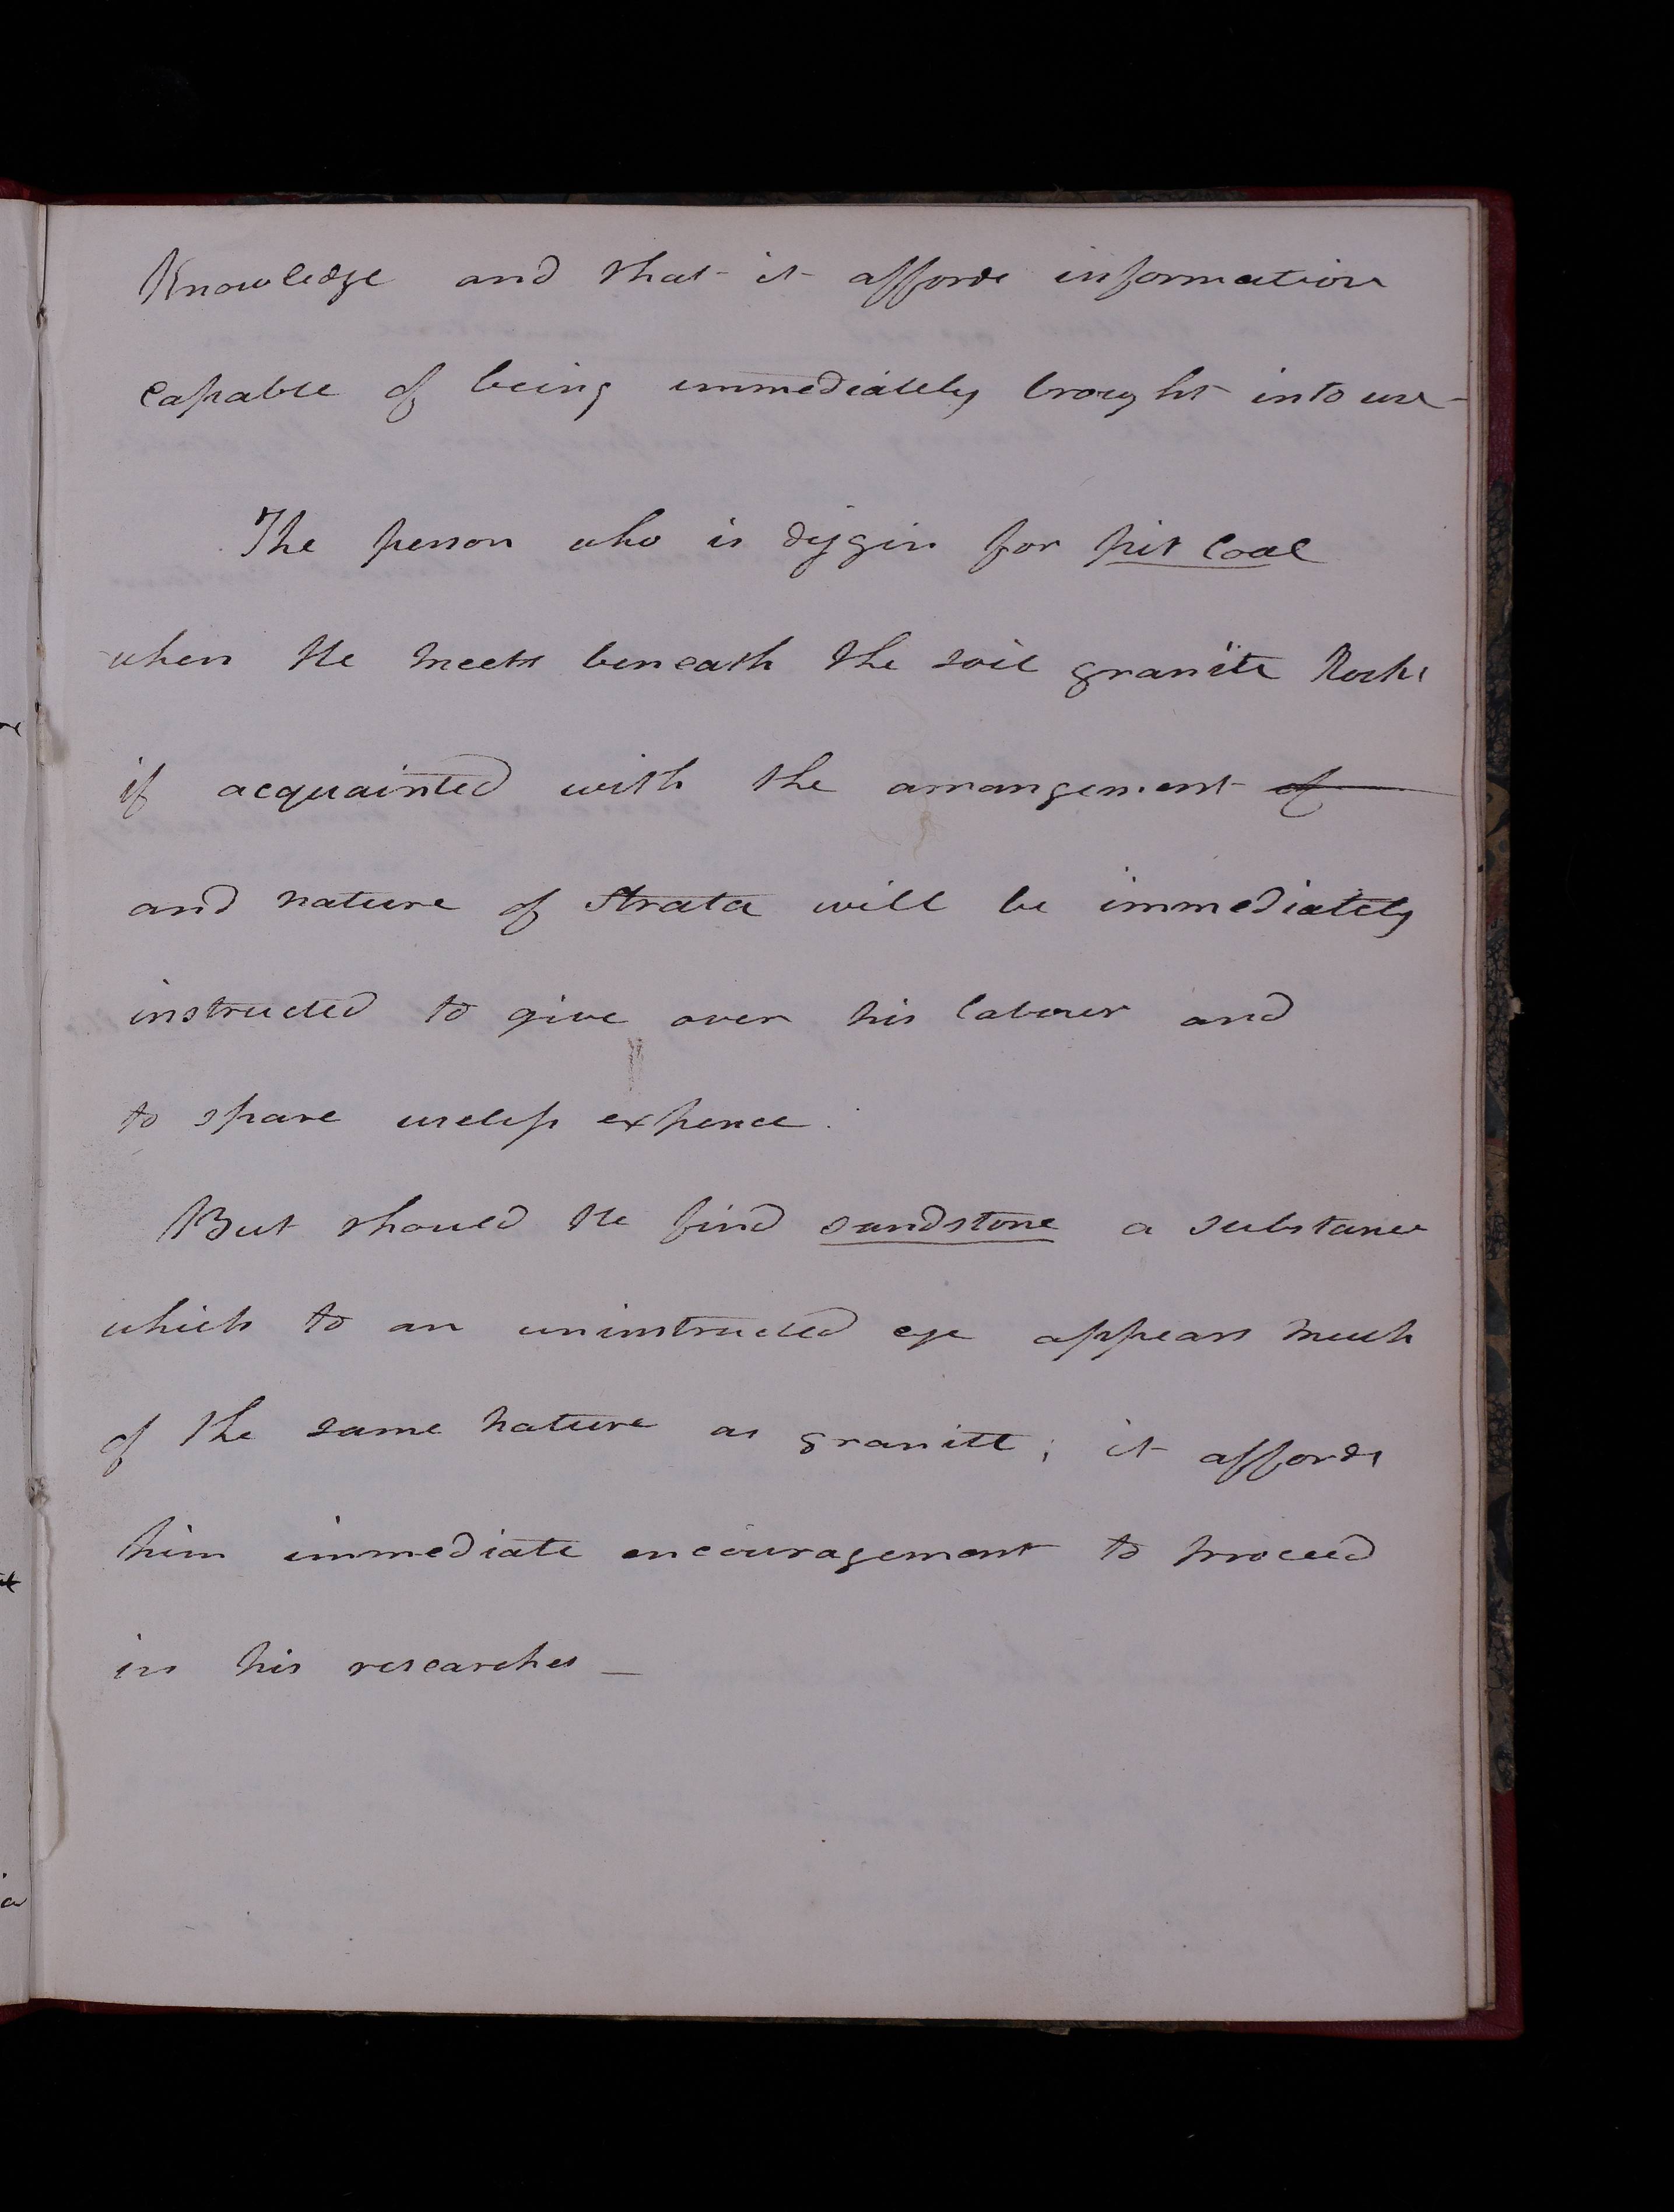 Knowledge and that it affords information
capable of being immediately brought into use -
The person who is diggin for pit coal
when He meets beneath the soil granite Rocks
if acquainted with the arrangement of
and nature of Strata will be immediately
instructed to give over his labour and
to spare useless expence.
But should He find sandstone a substance
which to an uninstructed eye appears much
of the same nature as granite; it affords
him immediate encouragement to proceed
in his researches _